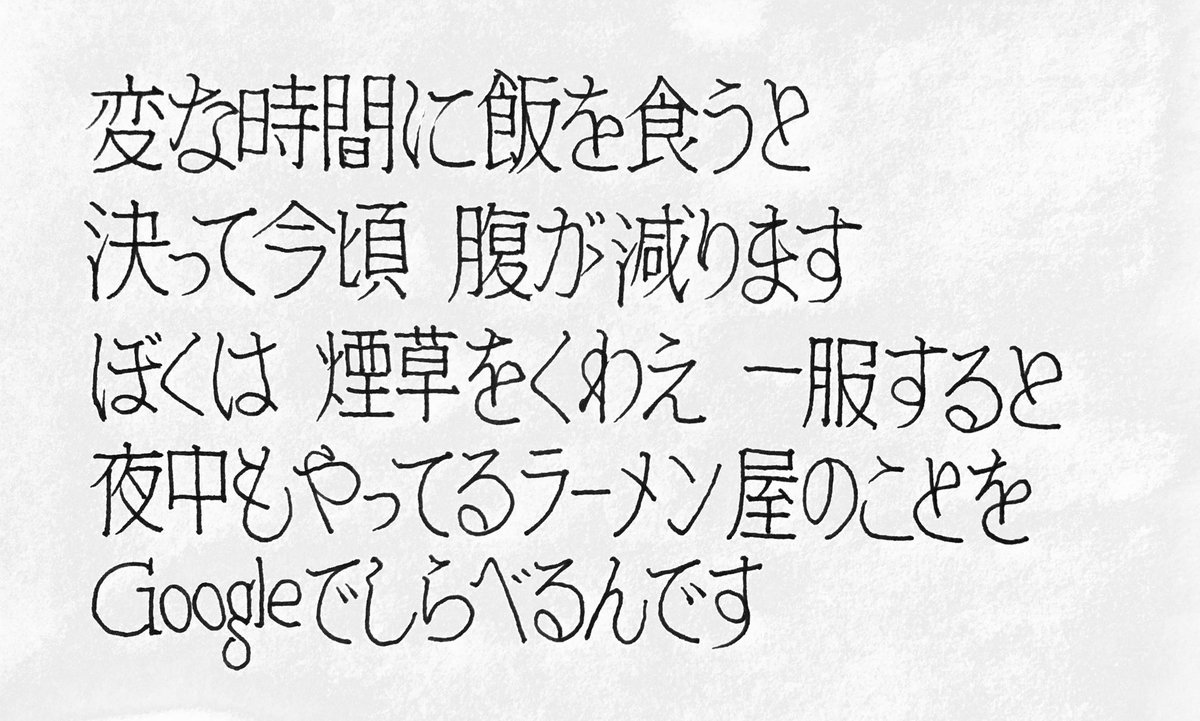 変な時間に飯を食うと
決って今頃　腹が減ります
ぼくは　煙草をくわえ　一服すると
夜中もやってるラーメン屋のことを
Googleでしらべるんです